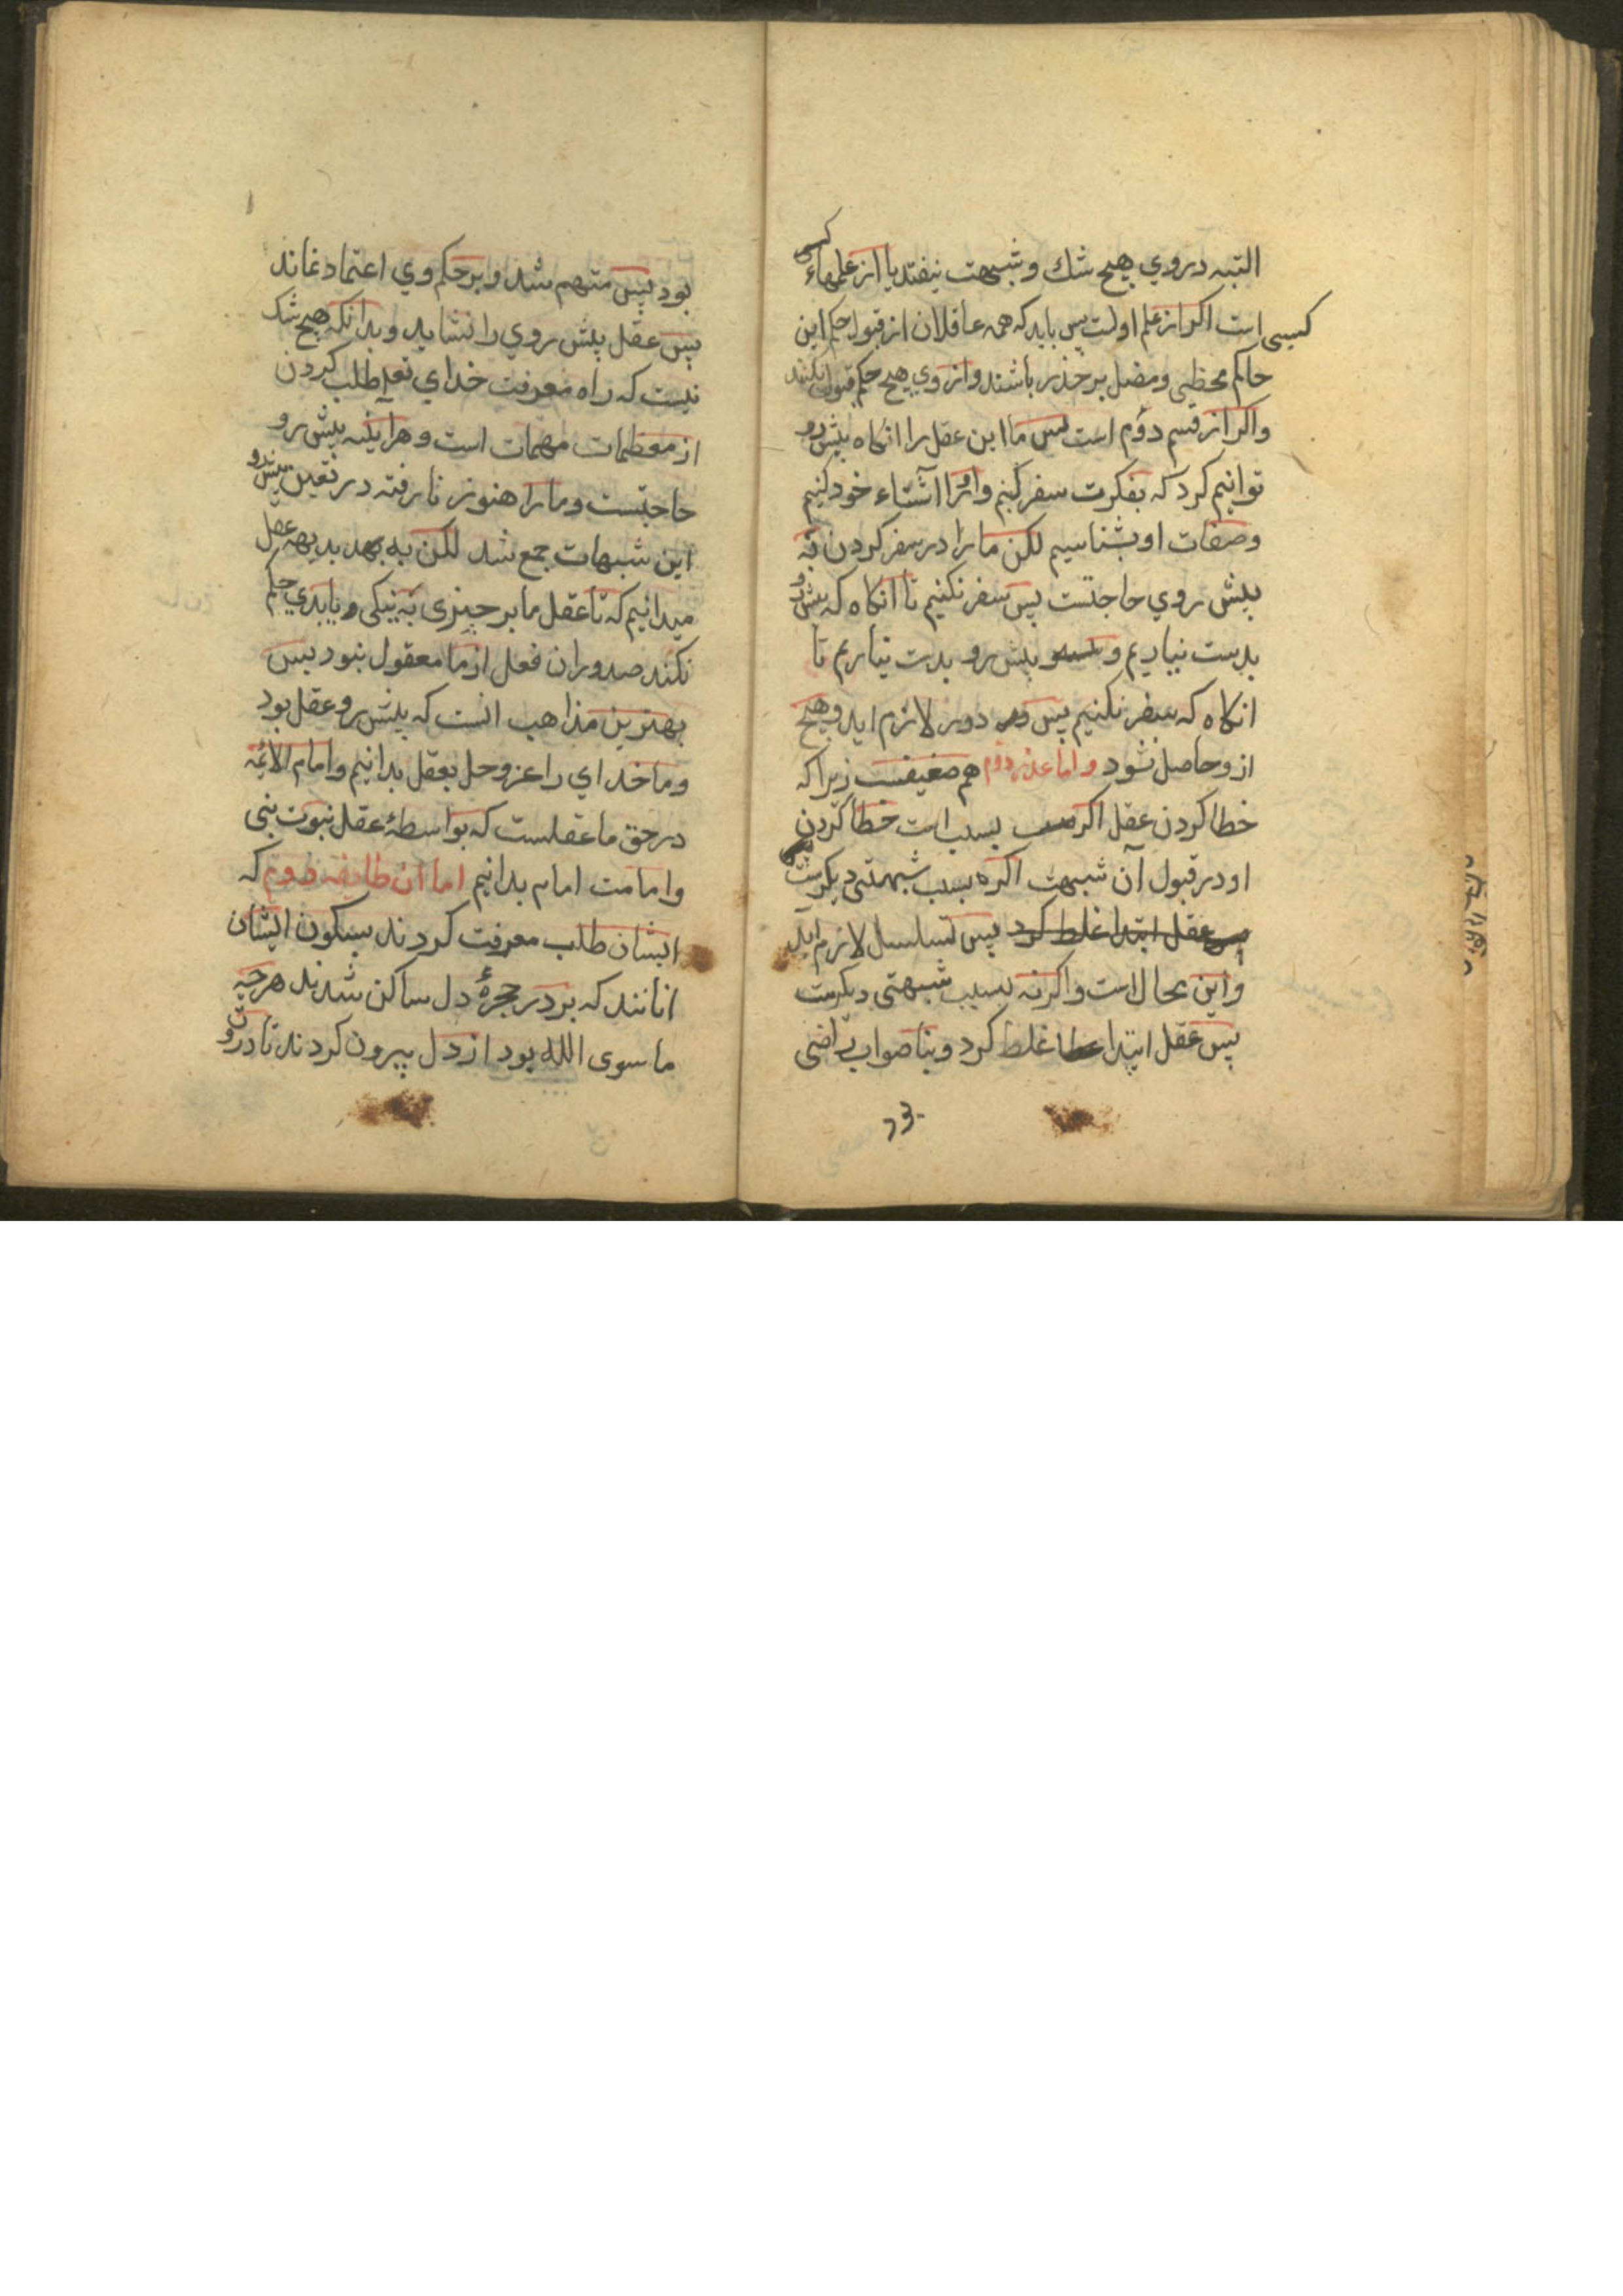 البته در وي هيچ شك و شبهت نيفتد يا از علمهاء كسبى
كسبى است اكر از علم اولست پس بايد كه همه عاقلان از قبول حكم اين
حاكم مخطى ومضل بر حذر باشند و از وي هيچ حكم قبول نكنند
واكر از قسم دوُم است پس ما اين عقل را انكاه پيش رو
توانيم كرد كه بفكرت سفر كنيم و اورا آشناء خود كنيم
وصفات او بشناسيم لكن ما را در سفر كردن به
پيش روي حاجتست پس سفر نكنيم تا انكاه كه پيش رو
بدست نياريم و پيش رو بدست نياريم تا
انكاه كه سفر نكنيم پس دور لازم ايد وهيچ
ازو حاصل نشود واما عذر دوم هم ضعيفست زيرا كه
خطا كردن عقل اكر بسبب است خطا كردن
او در قبول آن شبهت اكر بسبب شبهتى ديكرست
پس عقل ابتدا غلط كرد پس تسلسل لازم ايد
واين محال است واكر نه بسبب شبهتى ديكرست
پس عقل ابتدا غلط كرد وبناصواب راضى
بود پس متهم شد وبر حكم وي اعتماد نماند
پس عقل پيش روي را نشايد وبدانكه هيچ شك
نيست كه راه معرفت خداي تعلى طلب كردن
از معظمات مهمات است وهراينه پيش رو
حاجتست وما را هنوز نا رفته در تعين پيش رو
اين شبهات جمع شد لكن به بديهه عقل
ميدانيم كه تا عقل ما بر چيزى به نيكى و يا بدي حكم
نكند صدور ان فعل از ما معقول نبود پس
بهترين مذاهب انست كه پيش رو عقل بود
وما خداي را عز وجل بعقل بدانيم وامام الائمه
در حق ما عقلست كه بواسطهٔ عقل نبوت نبى
وامامت امام بدانيم اما آن طايفه دوم كه
ايشان طلب معرفت كردند بسكون ايشان
انانند كه بر در حجرهٔ دل ساكن شدند هر چه
ما سوى الله بود از دل بيرون كردند تا درون